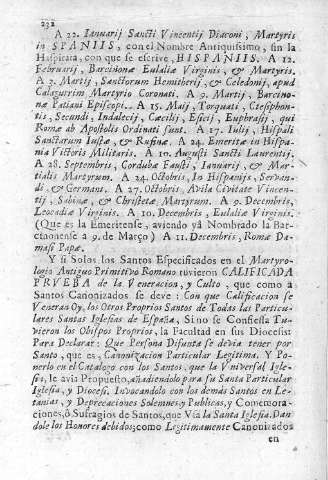 232
A 22. Ianuarij Sancti Vincentij Diaconi, Martyris
in SPANIIS, con el Nombre Antiquissimo, sin la
Haspirata, con que se escrive, HISPANIIS. A 12.
Februarij, Barcinonæ Eulaliæ Virginis, & Martyris.
A 3. Martij, Sanctorum Hemitherij, & Celedonij, apud
Calagurrim Martyrio Coronati. A 9. Martij, Barcino-
næ Patiani Episcopi. A 15. Maij, Torquati, Ctesiphon-
tis, Secundi, Indalecij, Cæcilij, Esicij, Euphrasij, qui
Romæ ab Apostolis Ordinati sunt. A 17. Iulij, Hispali
Sanctarum Iustæ, & Rufinæ. A 24. Emeritæ in Hispa-
nia Victoris Militaris. A 10. Augusti Sancti Laurentij.
A 28. Septembris, Cordubæ Fausti, Ianuarij, & Mar-
tialis Martyrum. A 24. Octobris, In Hispanijs, Servan-
di, & Germani. A 27. Octobris, Avila Civitate Vincen-
tij, Sabinæ, & Christetæ Martyrum. A 9. Decembris,
Leocadiæ Virginis. A 10. Decembris, Eulaliæ Virginis.
(Que es la Emeritense, aviendo yà Nombrado la Bar-
cinonense à 9. de Março) A 11. Decembris, Romæ Da-
masi Papæ.
Y si Solos los Santos Especificados en el Martyro-
logio Antiguo Primitivo Romano tuvieron CALIFICADA
PRVEBA de la Veneracion, y Culto, que como à
Santos Canonizados se deve: Con que Calificacion se
Veneran Oy, los Otros Proprios Santos de Todas las Particula-
res Santas Iglesias de España, Sino se Confiessa Tu-
vieron los Obispos Proprios, la Facultad en sus Diocesis:
Para Declarar: Que Persona Difunta se devia tener por
Santo, que es, Canonizacion Particular Legitima. Y Po-
nerlo en el Catalogo con los Santos, que la Vniversal Igle-
sia, le avia Propuesto, añadiendolo para su Santa Particular
Iglesia, y Diocesi. Invocandolo con los demàs Santos en Le-
tanias, y Deprecaciones Solemnes, y Publicas, y Comemora-
ciones, ò Sufragios de Santos, que Vsa la Santa Iglesia. Dan
dole los Honores debidos; como Legitimamente Canonizados
en